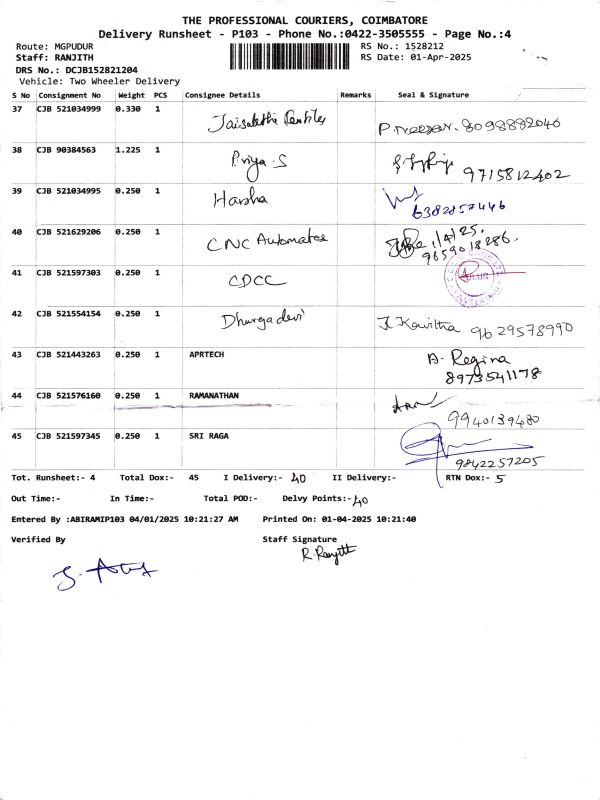 THE PROFESSIONAL COURIERS, COIMBATORE
Delivery Runsheet - P103 - Phone No.:0422-3505555 - Page No.:4
Route: MGPUDUR
RS No.: 1528212
Staff: RANJITH
RS Date: 01-Apr-2025
DRS No.: DCJB152821204
Vehicle: Two Wheeler Delivery
S No Consignment No Weight PCS Consignee Details Remarks Seal & Signature
37 CJB 521034999 0.330 1 8098882046
38 CJB 90384563 1.225 1 Priya.S 9715812402
39 CJB 521034995 0.250 1 Harsha 6382857446
40 CJB 521629206 0.250 1 CNC 9659018286.
41 CJB 521597303 0.250 1 CDCC
42 CJB 521554154 0.250 1 Dhurgadevi K Kavitha 9629578990
43 CJB 521443263 0.250 1 APRTECH A. Regina
8973541178
44 CJB 521576160 0.250 1 RAMANATHAN
9940139480
45 CJB 521597345 0.250 1 SRI RAGA
9842257205
Tot. Runsheet:- 4 Total Dox:- 45 I Delivery:- 40 II Delivery:- RTN Dox:- 5
Out Time:- In Time:- Total POD:- Delvy Points:- 40
Entered By :ABIRAMIP103 04/01/2025 10:21:27 AM Printed On: 01-04-2025 10:21:40
Verified By Staff Signature
R. Ranjith